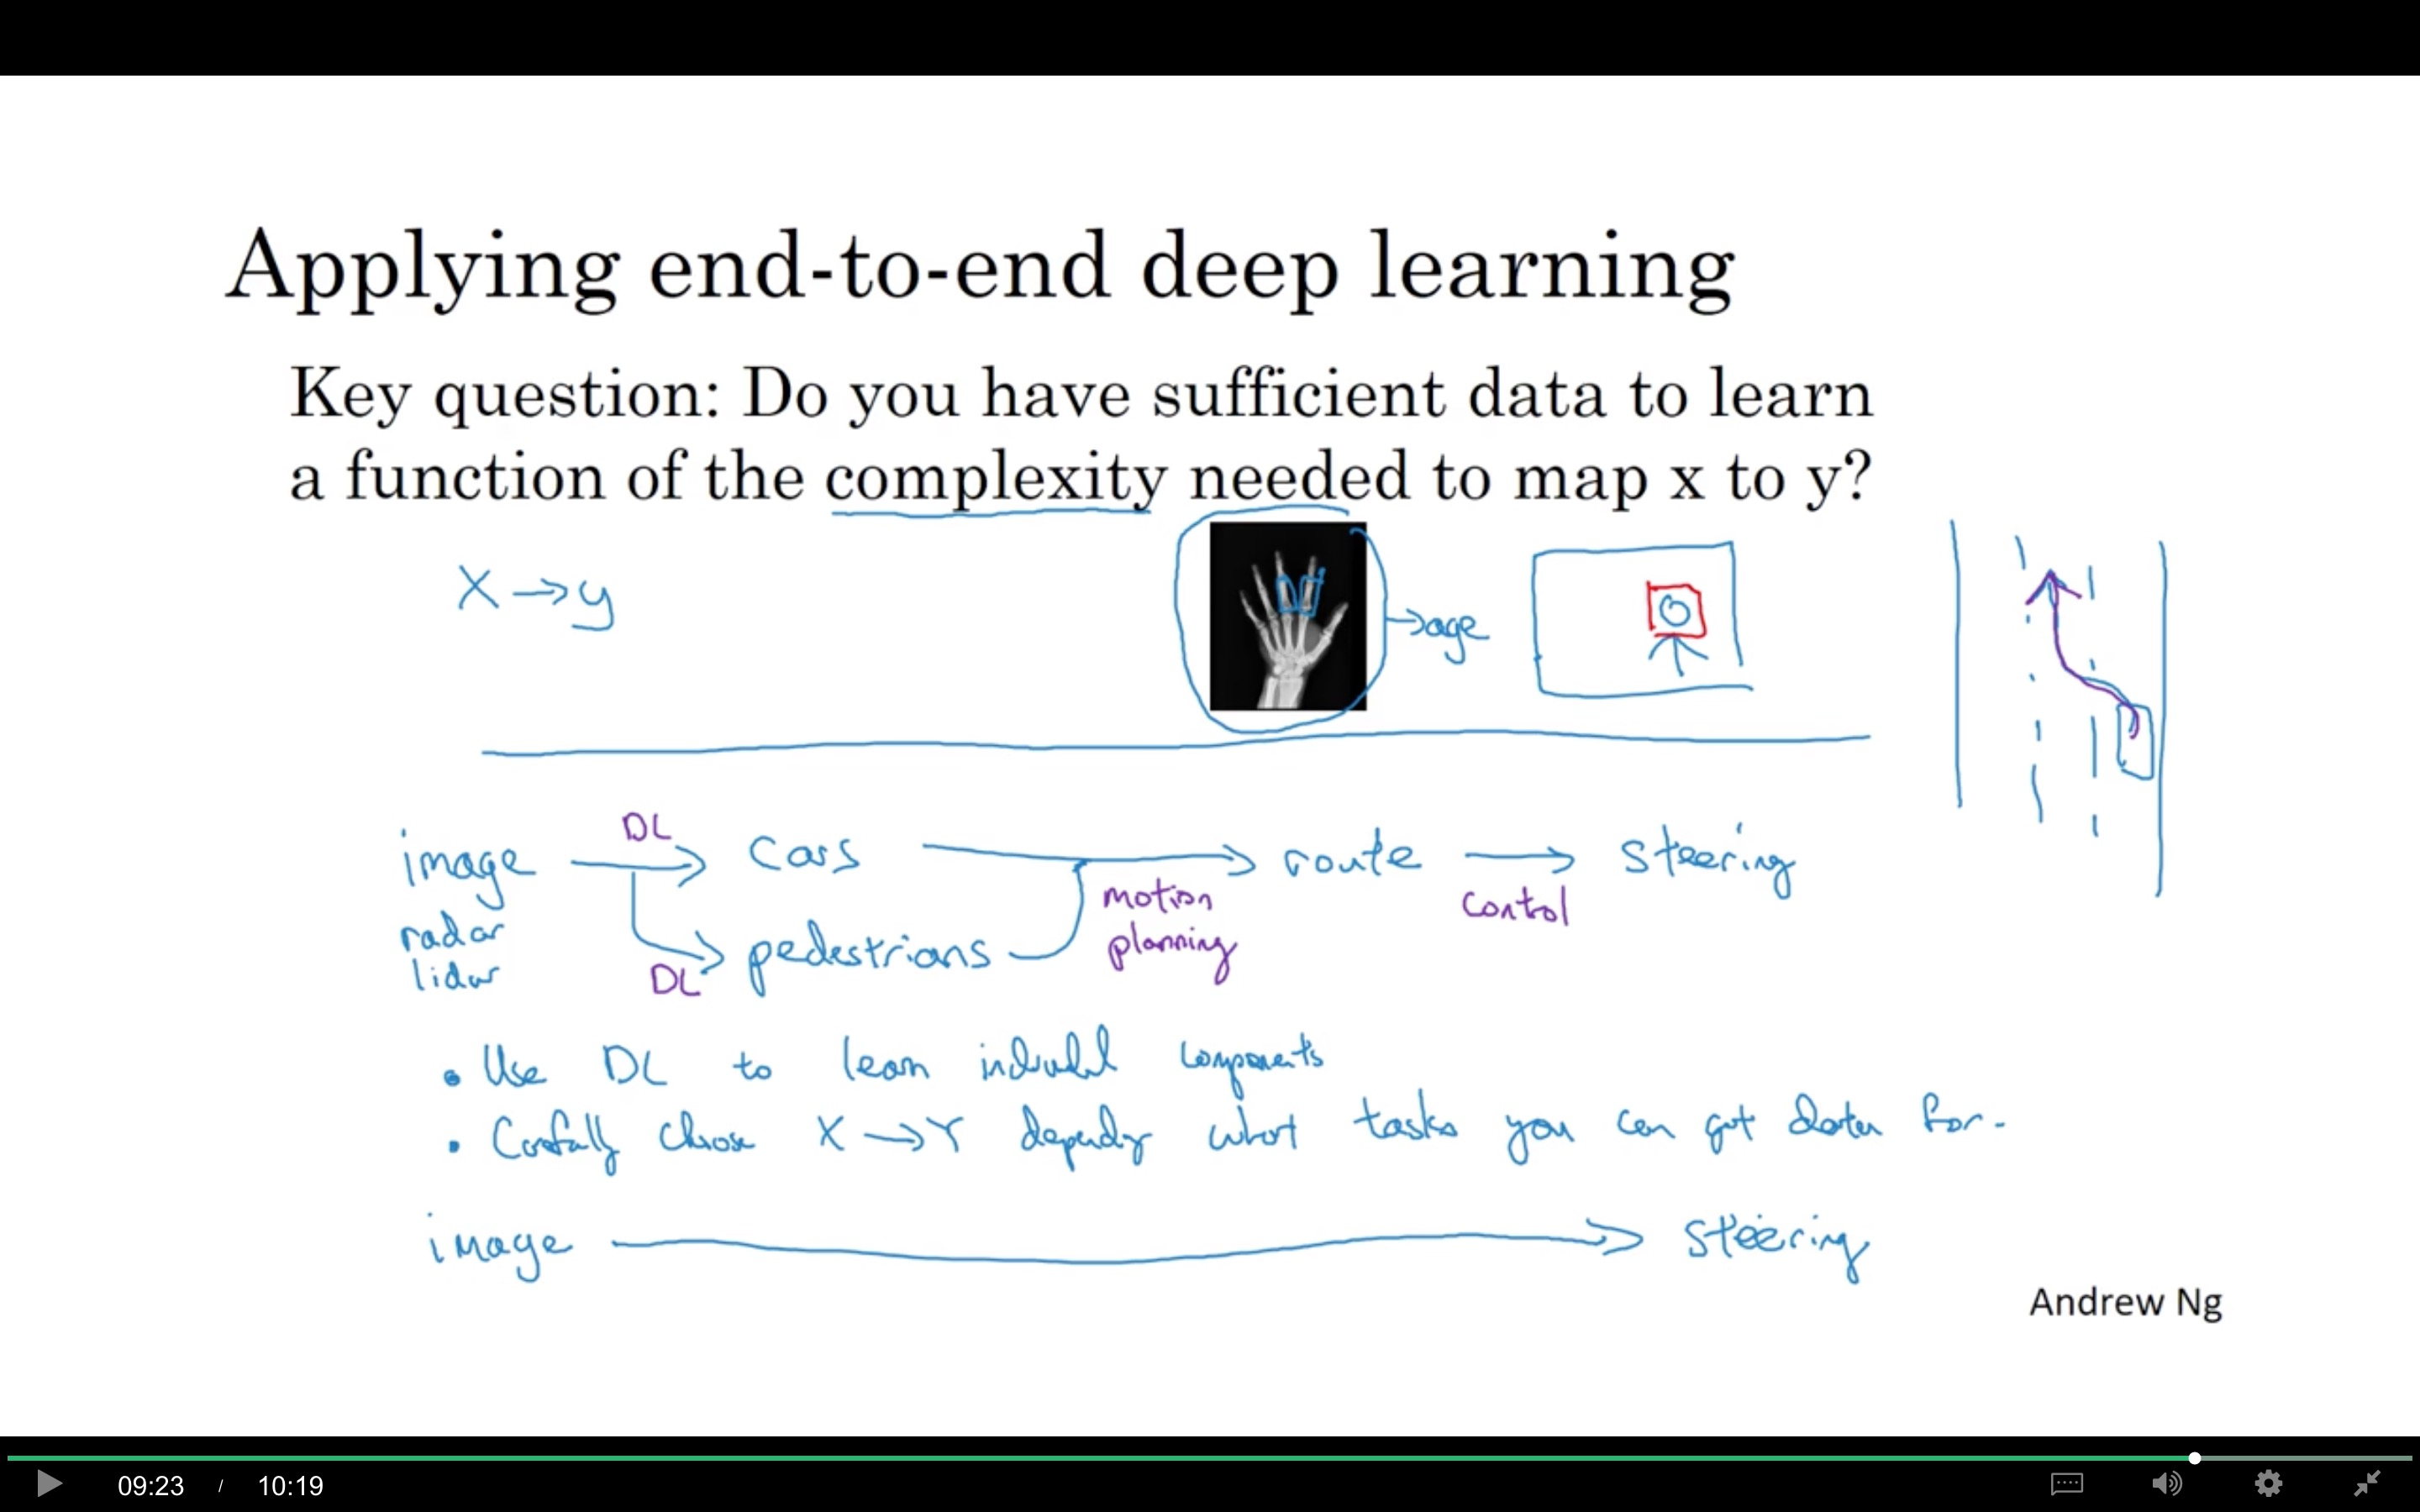 Applying end-to-end deep learning
Key question: Do you have sufficient data to learn
a function of the complexity needed to map x to y?
X → y
→ age
DL
image → cars → route → steering
radar
lidar
DL
pedestrians
motion
planning
control
• Use DL to learn individual components
• Carefully choose X → Y depending what tasks you can get data for.
image → steering
Andrew Ng
09:23 / 10:19